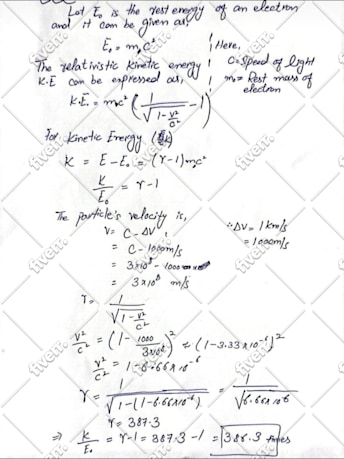 Let E₀ is the rest energy of an electron
and it can be given as,
E₀ = m₀c²
Here,
C = Speed of light
m₀ = Rest mass of
electron
The relativistic kinetic energy
K.E can be expressed as,
K.E. = m₀c² (1/√(1 - v²/c²) - 1)
For Kinetic Energy (K)
K = E - E₀ = (γ-1)m₀c²
K/E₀ = γ - 1
The particle's velocity is,
V = C - ΔV
∵ ΔV = 1 km/s
= 1000 m/s
= C - 1000 m/s
= 3×10⁸ - 1000
= 3×10⁸ m/s
γ = 1/√(1 - v²/c²)
v²/c² = (1 - 1000/3×10⁸)² ≈ (1 - 3.33×10⁻⁶)²
v²/c² = 1 - 6.66×10⁻⁶
γ = 1/√(1-(1-6.66×10⁻⁶)) = 1/√(6.66×10⁻⁶)
γ = 387.3
⇒ K/E₀ = γ-1 = 387.3 - 1 = 386.3 times
fiverr.